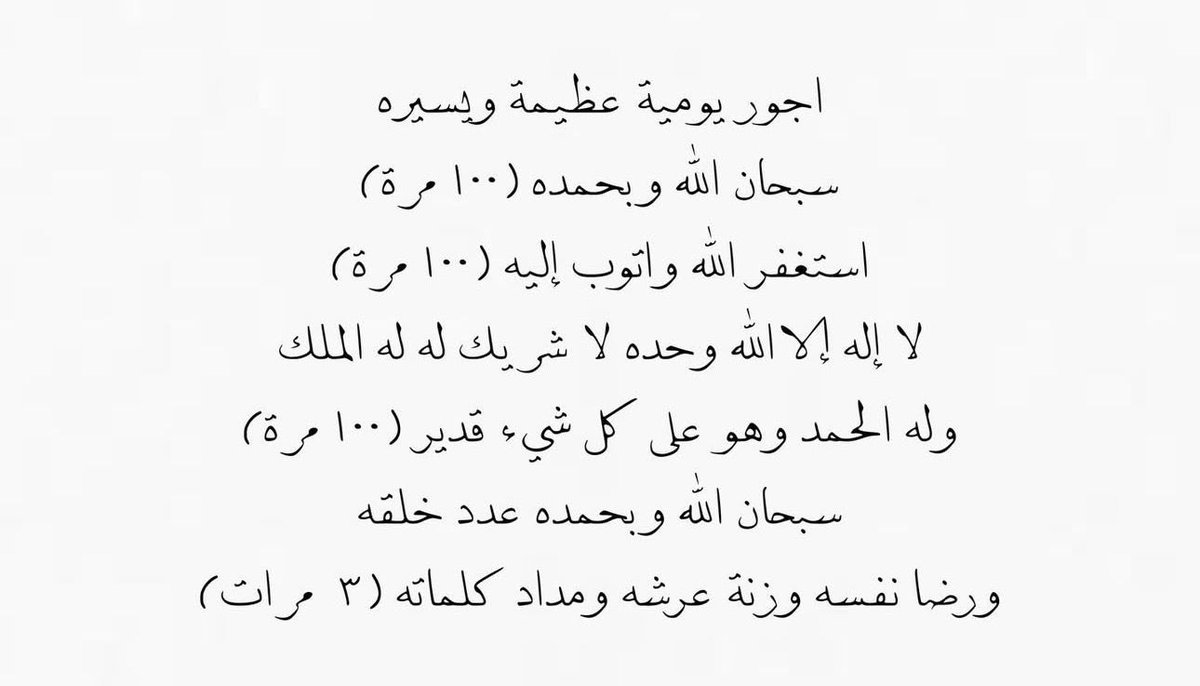 اجور يومية عظيمة ويسيره
سبحان الله وبحمده (١٠٠ مرة)
استغفر الله واتوب إليه (١٠٠ مرة)
لا إله إلا الله وحده لا شريك له له الملك
وله الحمد وهو على كل شيء قدير (١٠٠ مرة)
سبحان الله وبحمده عدد خلقه
ورضا نفسه وزنة عرشه ومداد كلماته (٣ مرات)